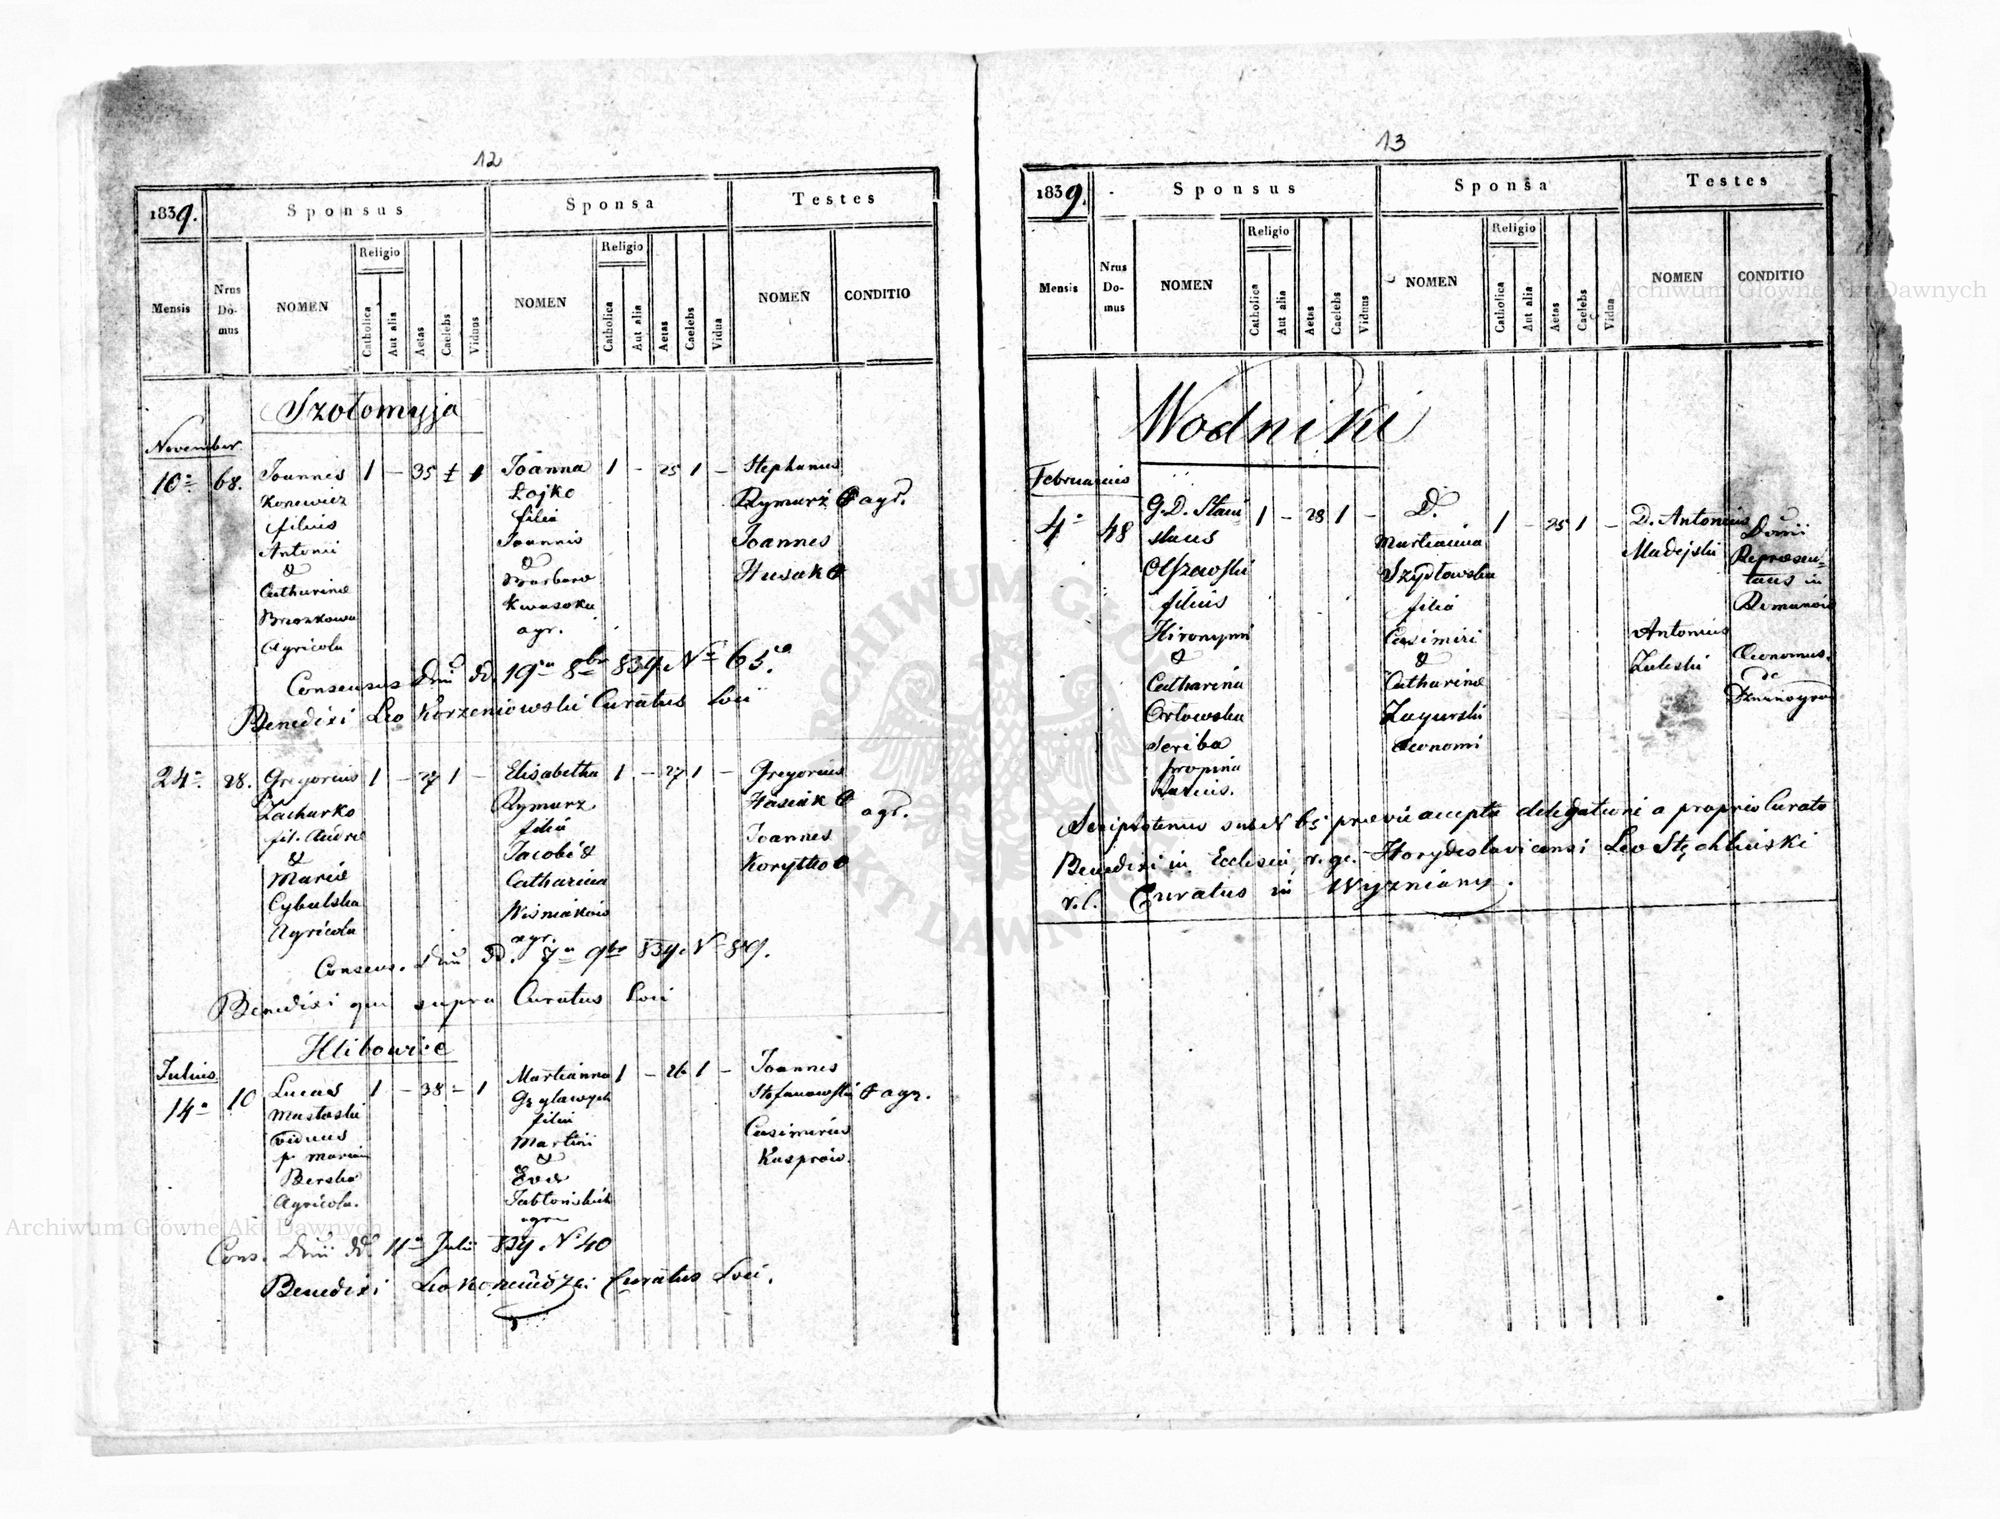 12
1839.
Sponsus
Sponsa
Testes
Mensis
Nrus Domus
NOMEN
Religio
Catholica
Aut alia
Aetas
Caelebs
Viduus
NOMEN
Religio
Catholica
Aut alia
Aetas
Caelebs
Vidua
NOMEN
CONDITIO
Szołomyja
November
10a 68. Joannes 1 – 35 ± 1 Joanna 1 – 25 1 – Stephanus
Konewicz Łojko Rymarz agr.
filius filia Joannes
Antonii Joannis Husak
& &
Catharinae Barbara
Kwasoka
Agricola agr.
Consensus Dnii dd. 19a 8br 839 N 65.
Benedixi Leo Korzeniowski Curatus Loci
24a 28. Gregorius 1 – 27 1 – Elisabetha 1 – 27 1 – Gregorius
Zacharko Rymarz Hasiak agr.
fil. Andreae filia Joannes
& Jacobi & Koryttko
Mariae Catharina
Cybulska
Agricola agr.
Consens. Dnii dd. 7a 9br 839 N 89.
Benedixi qui supra Curatus Loci
Hlibowice
Julius
14a 10 Lucas 1 – 38 – 1 Marianna 1 – 26 1 – Joannes
filia Stefanowski agr.
viduus Martini Casimirus
p. & Kasprow.
Berska Evae
Agricola. Jabłońskich
Cons. Dnii dd. 11a Julii 839 N 40
Benedixi Leo Curatus Loci.
13
1839.
Sponsus
Sponsa
Testes
Mensis
Nrus Domus
NOMEN
Religio
Catholica
Aut alia
Aetas
Caelebs
Viduus
NOMEN
Religio
Catholica
Aut alia
Aetas
Caelebs
Vidua
NOMEN
CONDITIO
Wodniki
Februarius
4a 48 G.D. Stani 1 – 28 1 – D. 1 – 25 1 – D. Antonius Domii
slaus Marianna Madejski Repraesen-
Olszewski Szydłowska tans in
filius filia Romanów
Hironymi Casimiri Antonius
& & Zaleski Oeconomus
Catharina Catharinae de
Orłowska Zagurski Dzwinogrod
scriba Oeconomi
propina
tionis.
sub N 65 praevie accepta delegatione a proprio Curato
Benedixi in Ecclesia r. gr. Horydoslavicensi Leo Stęchliński
r. l. Curatus in Wyzniany.
ARCHIWUM GŁÓWNE AKT DAWNYCH
Archiwum Główne Akt Dawnych
Archiwum Główne Akt Dawnych